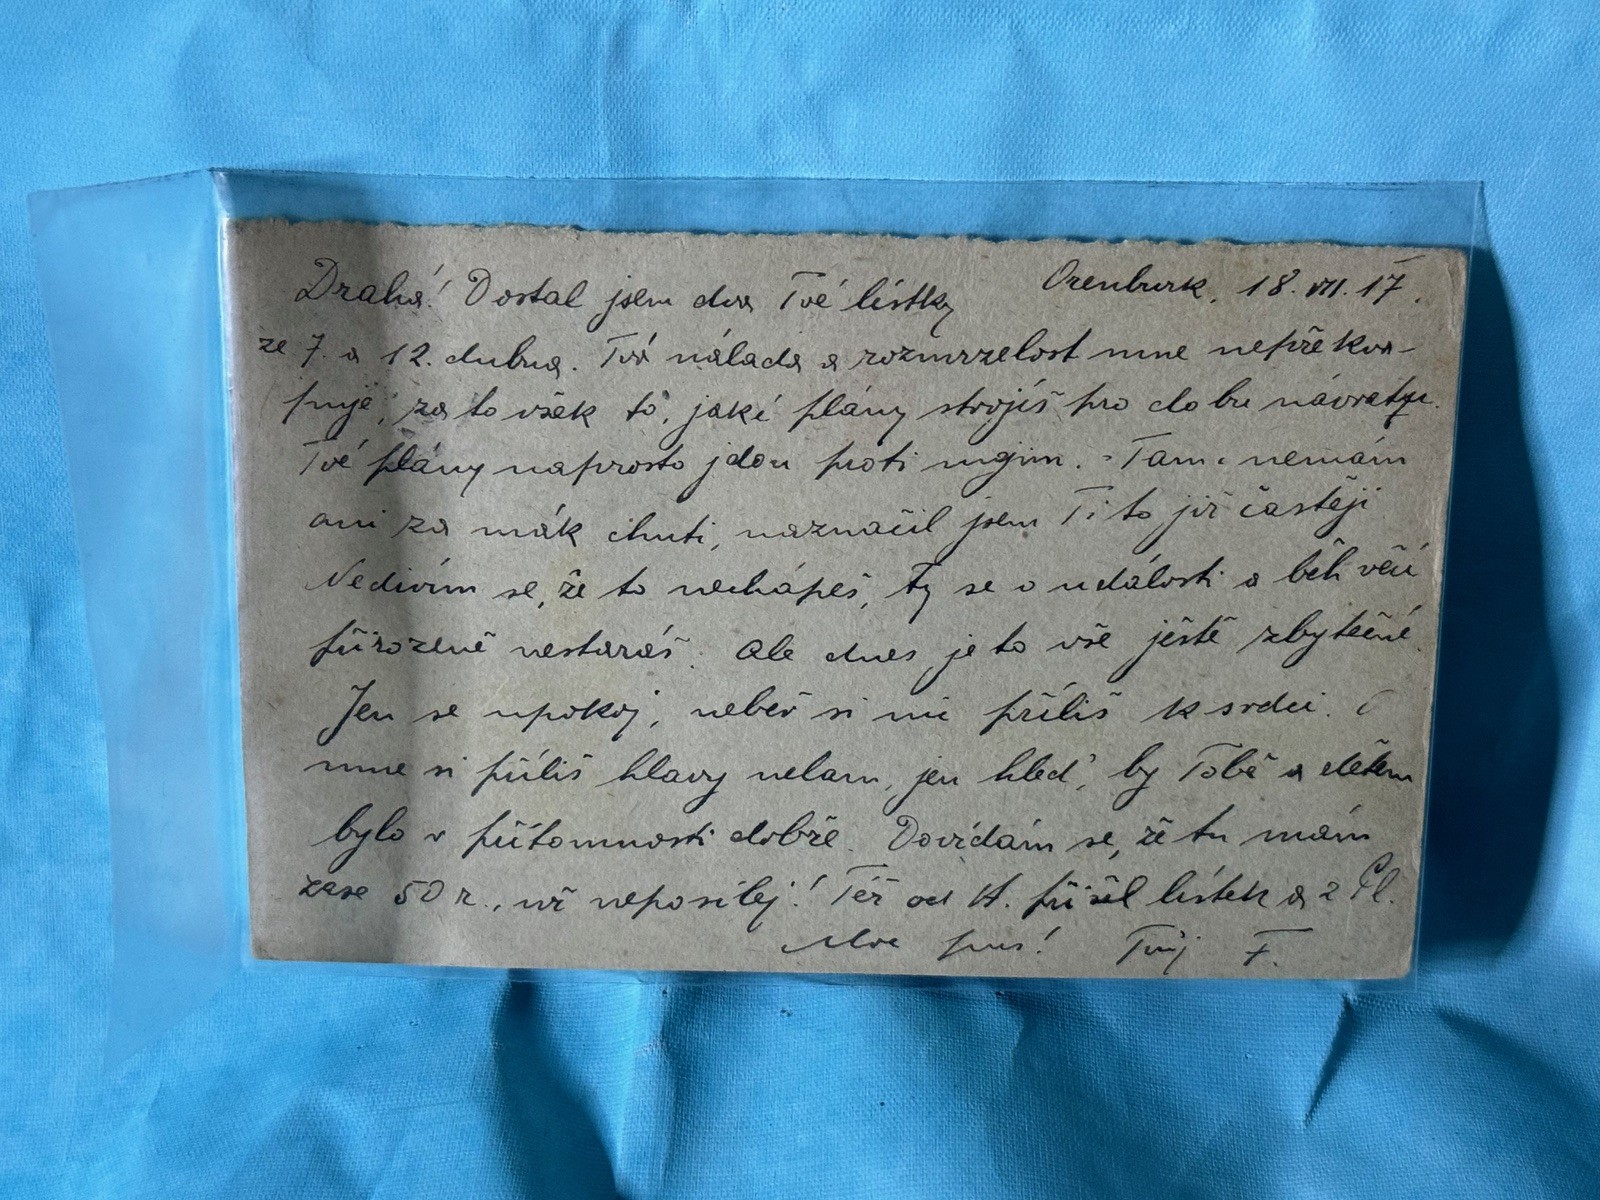 Orenburk, 18. VII. 17.
Drahá! Dostal jsem dva Tvé lístky
ze 7. a 12. dubna. Tvá nálada a rozmrzelost mne nepřekva-
puje, za to však to, jaké plány strojíš pro dobu návratu.
Tvé plány naprosto jdou proti mým. Tam nemám
ani za mák chuti, naznačil jsem Ti to již častěji
Nedivím se, že to nechápeš, Ty se o události a běh věcí
přirozeně nestaráš. Ale dnes je to vše ještě zbytečné.
Jen se upokoj, neber si nic příliš k srdci. O
mne si příliš hlavy nelam, jen hleď, by Tobě a dětem
bylo v přítomnosti dobře. Dovídám se, že tu mám
zase 50 r., víc neposílej! Též od A. přišel lístek a z Pl.
Moc pus! Tvůj F.